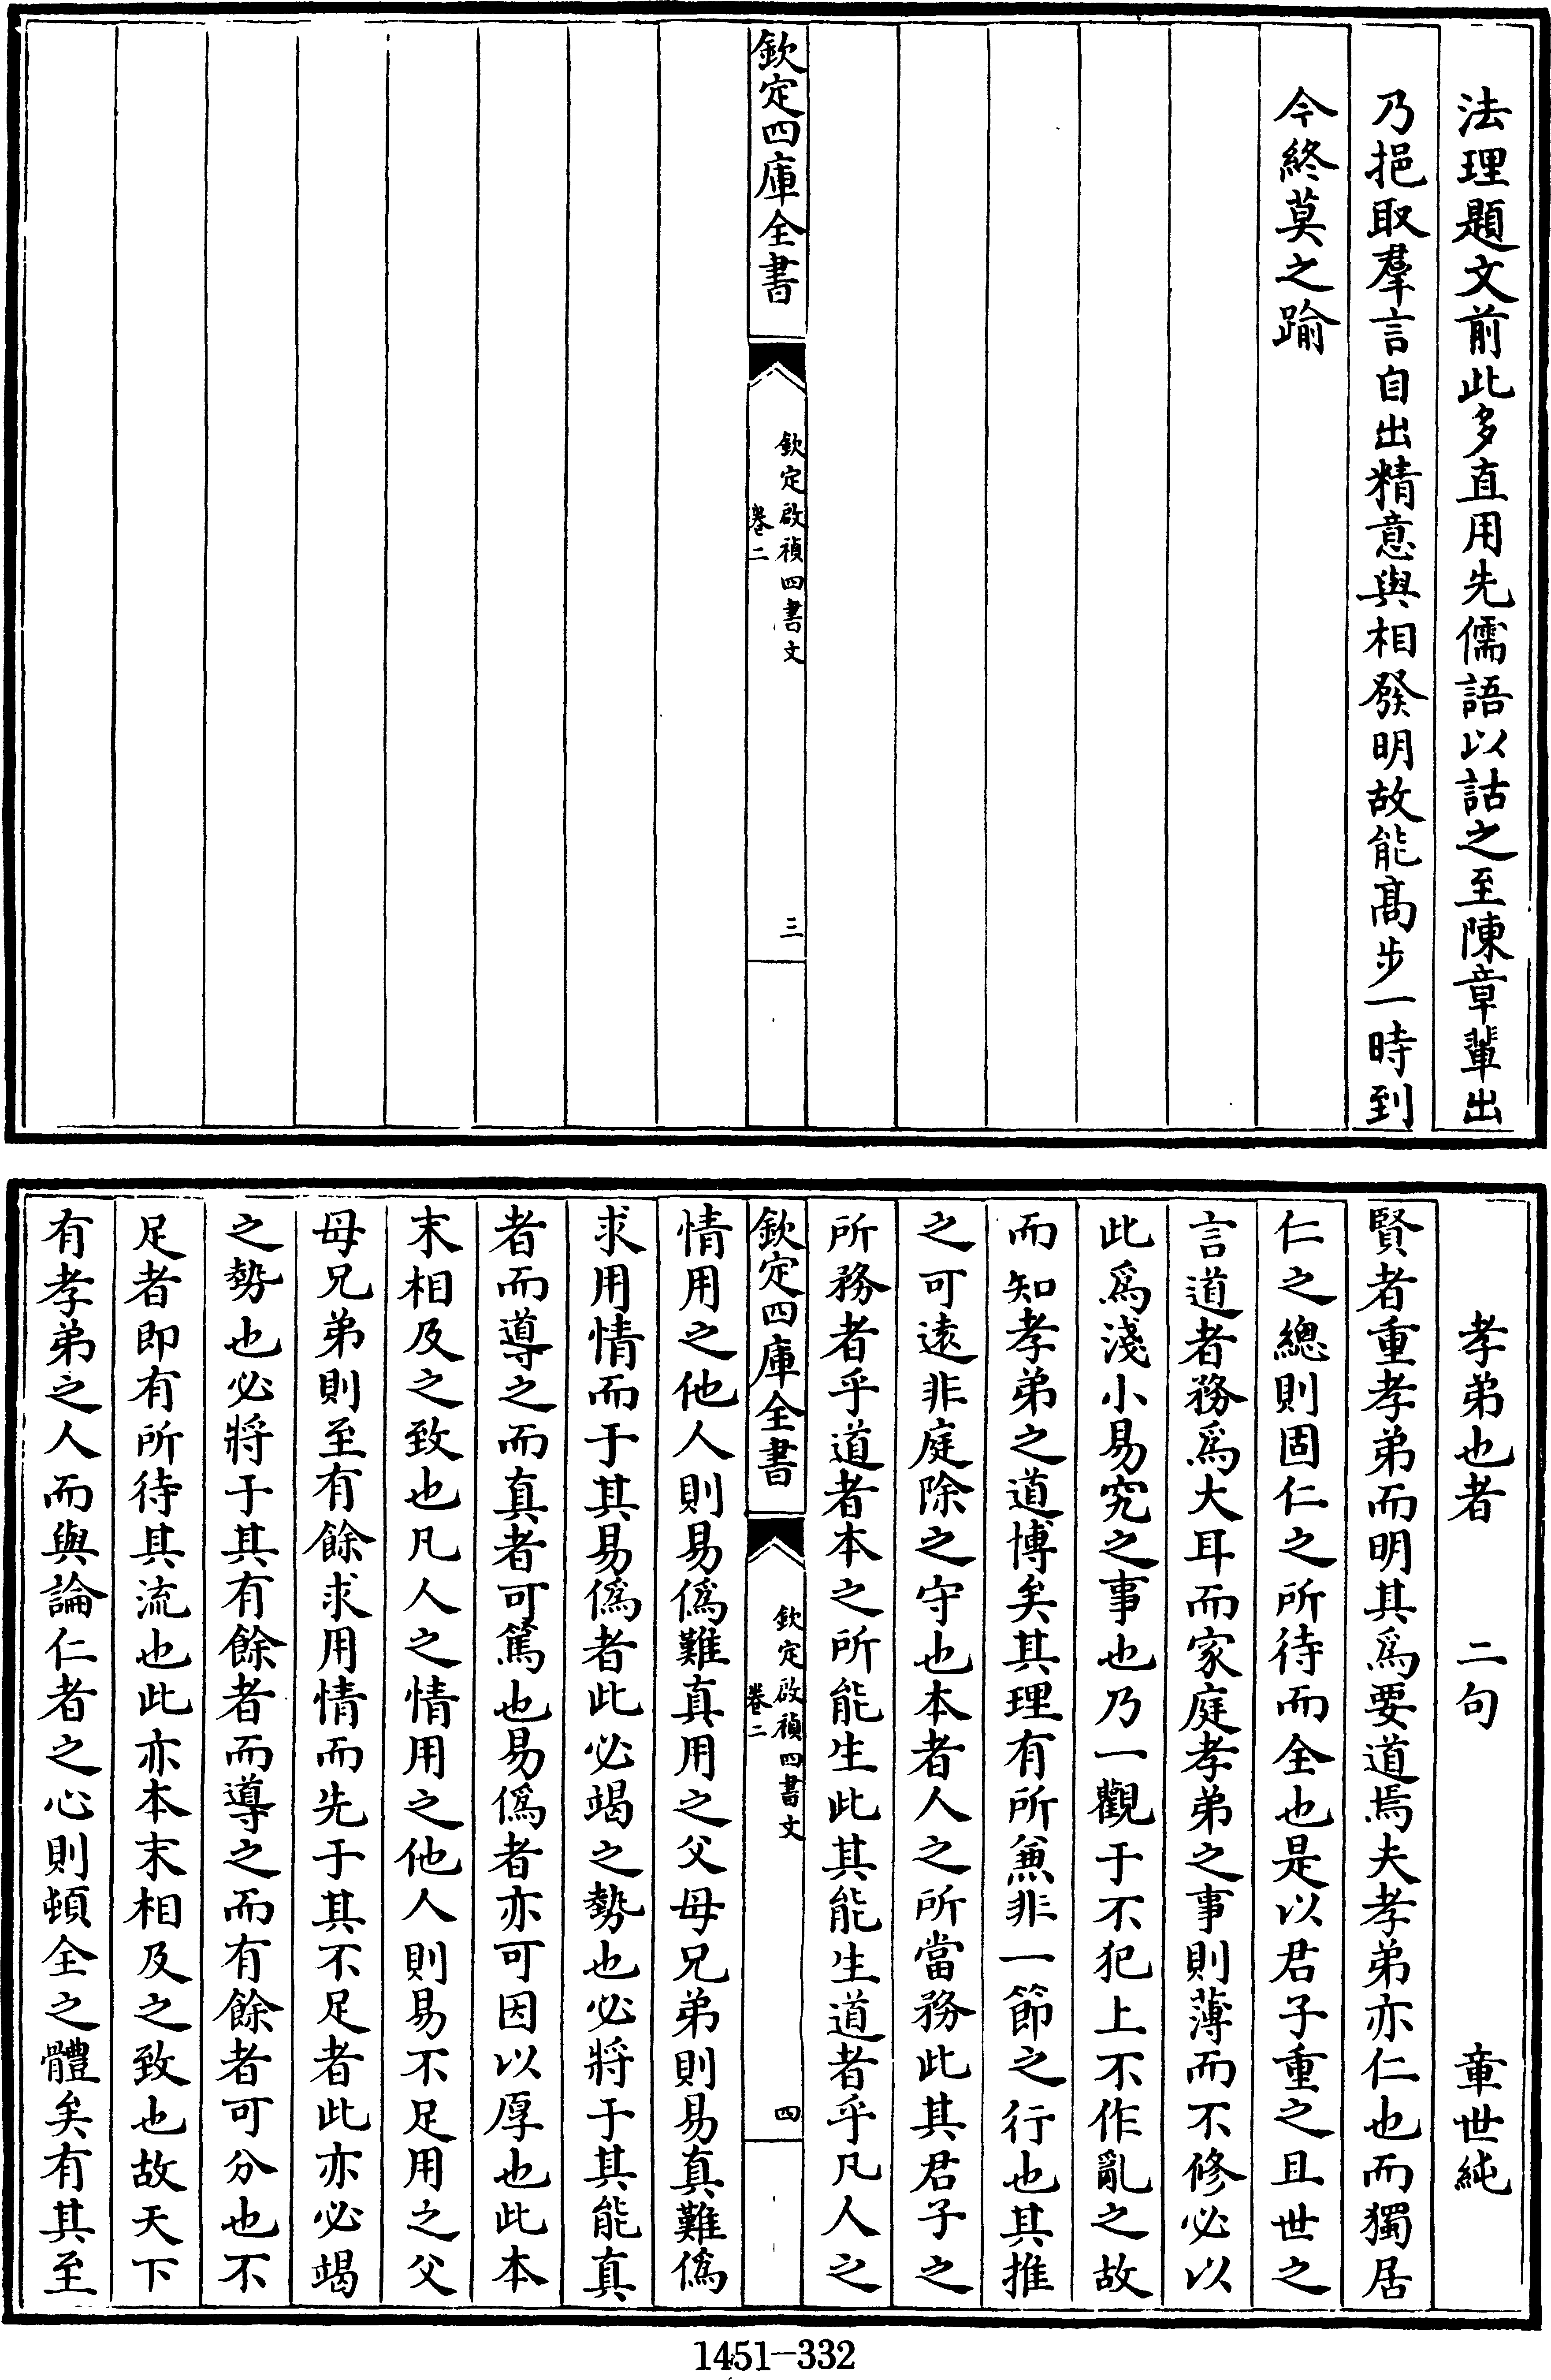 法理題文前此多直用先儒語以詁之至陳章輩出
乃挹取羣言自出精意與相發明故能高步一時到
今終莫之踰
欽定四庫全書
欽定啟禎四書文
卷二
三
孝弟也者 二句 章世純
賢者重孝弟而明其為要道焉夫孝弟亦仁也而獨居
仁之總則固仁之所待而全也是以君子重之且世之
言道者務為大耳而家庭孝弟之事則薄而不修必以
此為淺小易究之事也乃一觀于不犯上不作亂之故
而知孝弟之道博矣其理有所兼非一節之行也其推
之可遠非庭除之守也本者人之所當務此其君子之
所務者乎道者本之所能生此其能生道者乎凡人之
欽定四庫全書
欽定啟禎四書文
卷二
四
情用之他人則易偽難真用之父母兄弟則易真難偽
求用情而于其易偽者此必竭之勢也必將于其能真
者而導之而真者可篤也易偽者亦可因以厚也此本
末相及之致也凡人之情用之他人則易不足用之父
母兄弟則至有餘求用情而先于其不足者此亦必竭
之勢也必將于其有餘者而導之而有餘者可分也不
足者即有所待其流也此亦本末相及之致也故天下
有孝弟之人而與論仁者之心則頓全之體矣有其至
1451-332